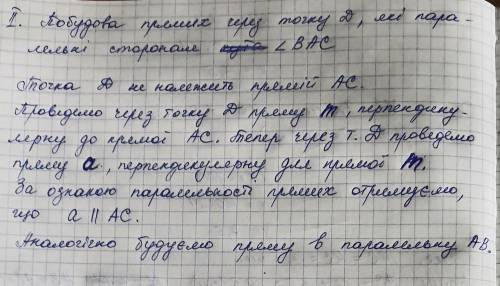 II. Побудова прямих через точку D, які пара-
лельні сторонам кута ∠ BAC
Точка D не належить прямій AC.
Проведемо через точку D пряму m, перпендику-
лярну до прямої AC. Тепер через т. D проведемо
пряму a, перпендикулярну для прямої m.
За ознакою паралельності прямих отримуємо,
що a || AC.
Аналогічно будуємо пряму b паралельну AB.